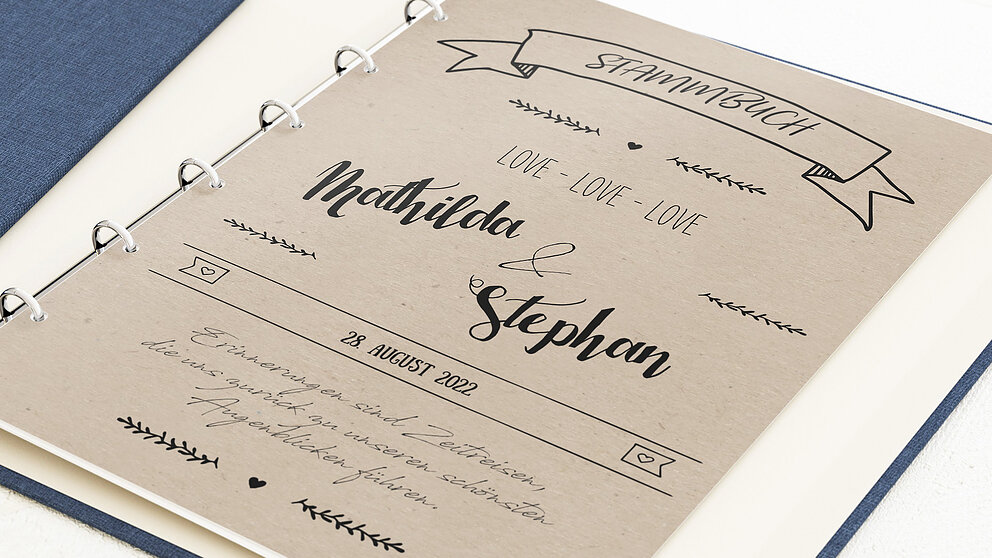 STAMMBUCH
LOVE - LOVE - LOVE
Mathilda
&
Stephan
28. AUGUST 2022
Erinnerungen sind Zeitreisen,
die uns zurück zu unseren schönsten
Augenblicken führen.